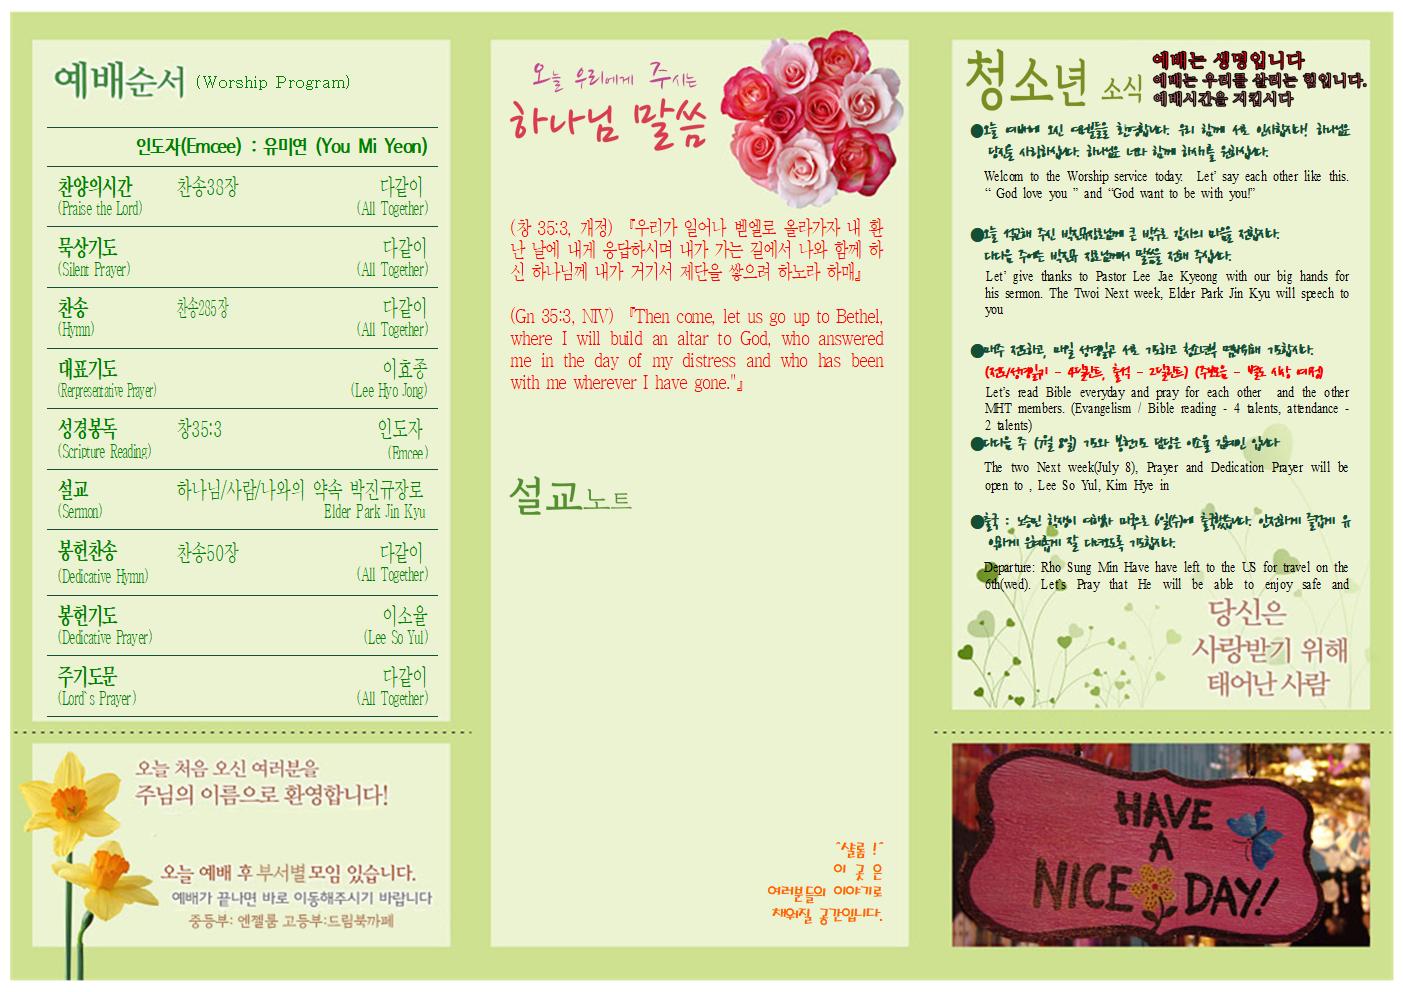 예배순서 (Worship Program)
인도자(Emcee) : 유미연 (You Mi Yeon)
찬양의시간 찬송38장 다같이
(Praise the Lord) (All Together)
묵상기도 다같이
(Silent Prayer) (All Together)
찬송 찬송285장 다같이
(Hymn) (All Together)
대표기도 이효종
(Rerpresentative Prayer) (Lee Hyo Jong)
성경봉독 창35:3 인도자
(Scripture Reading) (Emcee)
설교 하나님/사람/나와의 약속 박진규장로
(Sermon) Elder Park Jin Kyu
봉헌찬송 찬송50장 다같이
(Dedicative Hymn) (All Together)
봉헌기도 이소율
(Dedicative Prayer) (Lee So Yul)
주기도문 다같이
(Lord`s Prayer) (All Together)
오늘 처음 오신 여러분을
주님의 이름으로 환영합니다!
오늘 예배 후 부서별 모임 있습니다.
예배가 끝나면 바로 이동해주시기 바랍니다
중등부: 엔젤룸 고등부:드림북까페
오늘 우리에게 주시는
하나님 말씀
(창 35:3, 개정) 『우리가 일어나 벧엘로 올라가자 내 환
난 날에 내게 응답하시며 내가 가는 길에서 나와 함께 하
신 하나님께 내가 거기서 제단을 쌓으려 하노라 하매』
(Gn 35:3, NIV) 『Then come, let us go up to Bethel,
where I will build an altar to God, who answered
me in the day of my distress and who has been
with me wherever I have gone."』
설교노트
"샬롬 !"
이 곳 은
여러분들의 이야기로
채워질 공간입니다.
청소년 소식
예배는 생명입니다
예배는 우리를 살리는 힘입니다.
예배시간을 지킵시다
●오늘 예배에 오신 여러분들을 환영합니다. 우리 함께 서로 인사합시다! 하나님은
당신을 사랑하십니다. 하나님은 너와 함께 하시기를 원하십니다.
Welcom to the Worship service today. Let' say each other like this.
" God love you " and "God want to be with you!"
●오늘 설교해 주신 큰 박수로 감사의 마음을 전합시다.
다다음 주에는 박진규 장로님께서 말씀을 전해 주십니다.
Let' give thanks to Pastor Lee Jae Kyeong with our big hands for
his sermon. The Twoi Next week, Elder Park Jin Kyu will speech to
you
●매주 전도하고, 매일 성경읽고 서로 기도하고 청소년부 위해 기도합시다.
(전도/성경읽기 - 4달란트, 출석 - 2달란트)
Let's read Bible everyday and pray for each other and the other
MHT members. (Evangelism / Bible reading - 4 talents, attendance -
2 talents)
●다다음 주 (7월 8일) 기도와 봉헌기도 담당은 이소율 김혜인 입니다
The two Next week(July 8), Prayer and Dedication Prayer will be
open to , Lee So Yul, Kim Hye in
●출국 : 노승민 학생이 여행차 미국으로 6일(수)에 출국했습니다. 안전하게 즐겁게 유
익하게 은혜롭게 잘 다녀오도록 기도합시다.
Departure: Rho Sung Min Have have left to the US for travel on the
6th(wed). Let's Pray that He will be able to enjoy safe and
당신은
사랑받기 위해
태어난 사람
HAVE
A
NICE DAY!